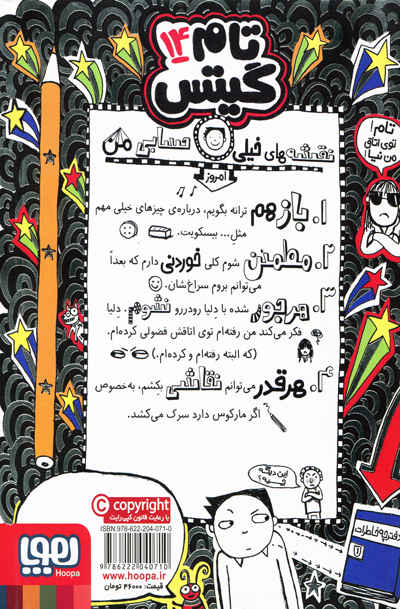 تام ۱۴
گیتس
نقشه‌های خیلی حسابی من
امروز
۱. باز هم ترانه بگویم، درباره‌ی چیزهای خیلی مهم
مثل... بیسکویت.
۲. مطمئن شوم کلی خوردنی دارم که بعداً
می‌توانم بروم سراغ‌شان.
۳. هرجور شده با دلیا رودررو نشوم. دلیا
فکر می‌کند من رفته‌ام توی اتاقش فضولی کرده‌ام.
(که البته رفته‌ام و کرده‌ام.)
۴. هرقدر می‌توانم نقاشی بکشم، به‌خصوص
اگر مارکوس دارد سرک می‌کشد.
تام!
توی اتاق
من نیا!
این دیگه
چیه؟
دفترچه خاطرات
© copyright
با رعایت قانون کپی‌رایت
ISBN:978-622-204-071-0
9 786222 040710
www.hoopa.ir
قیمت: ۴۶۰۰۰ تومان
هوپا
Hoopa